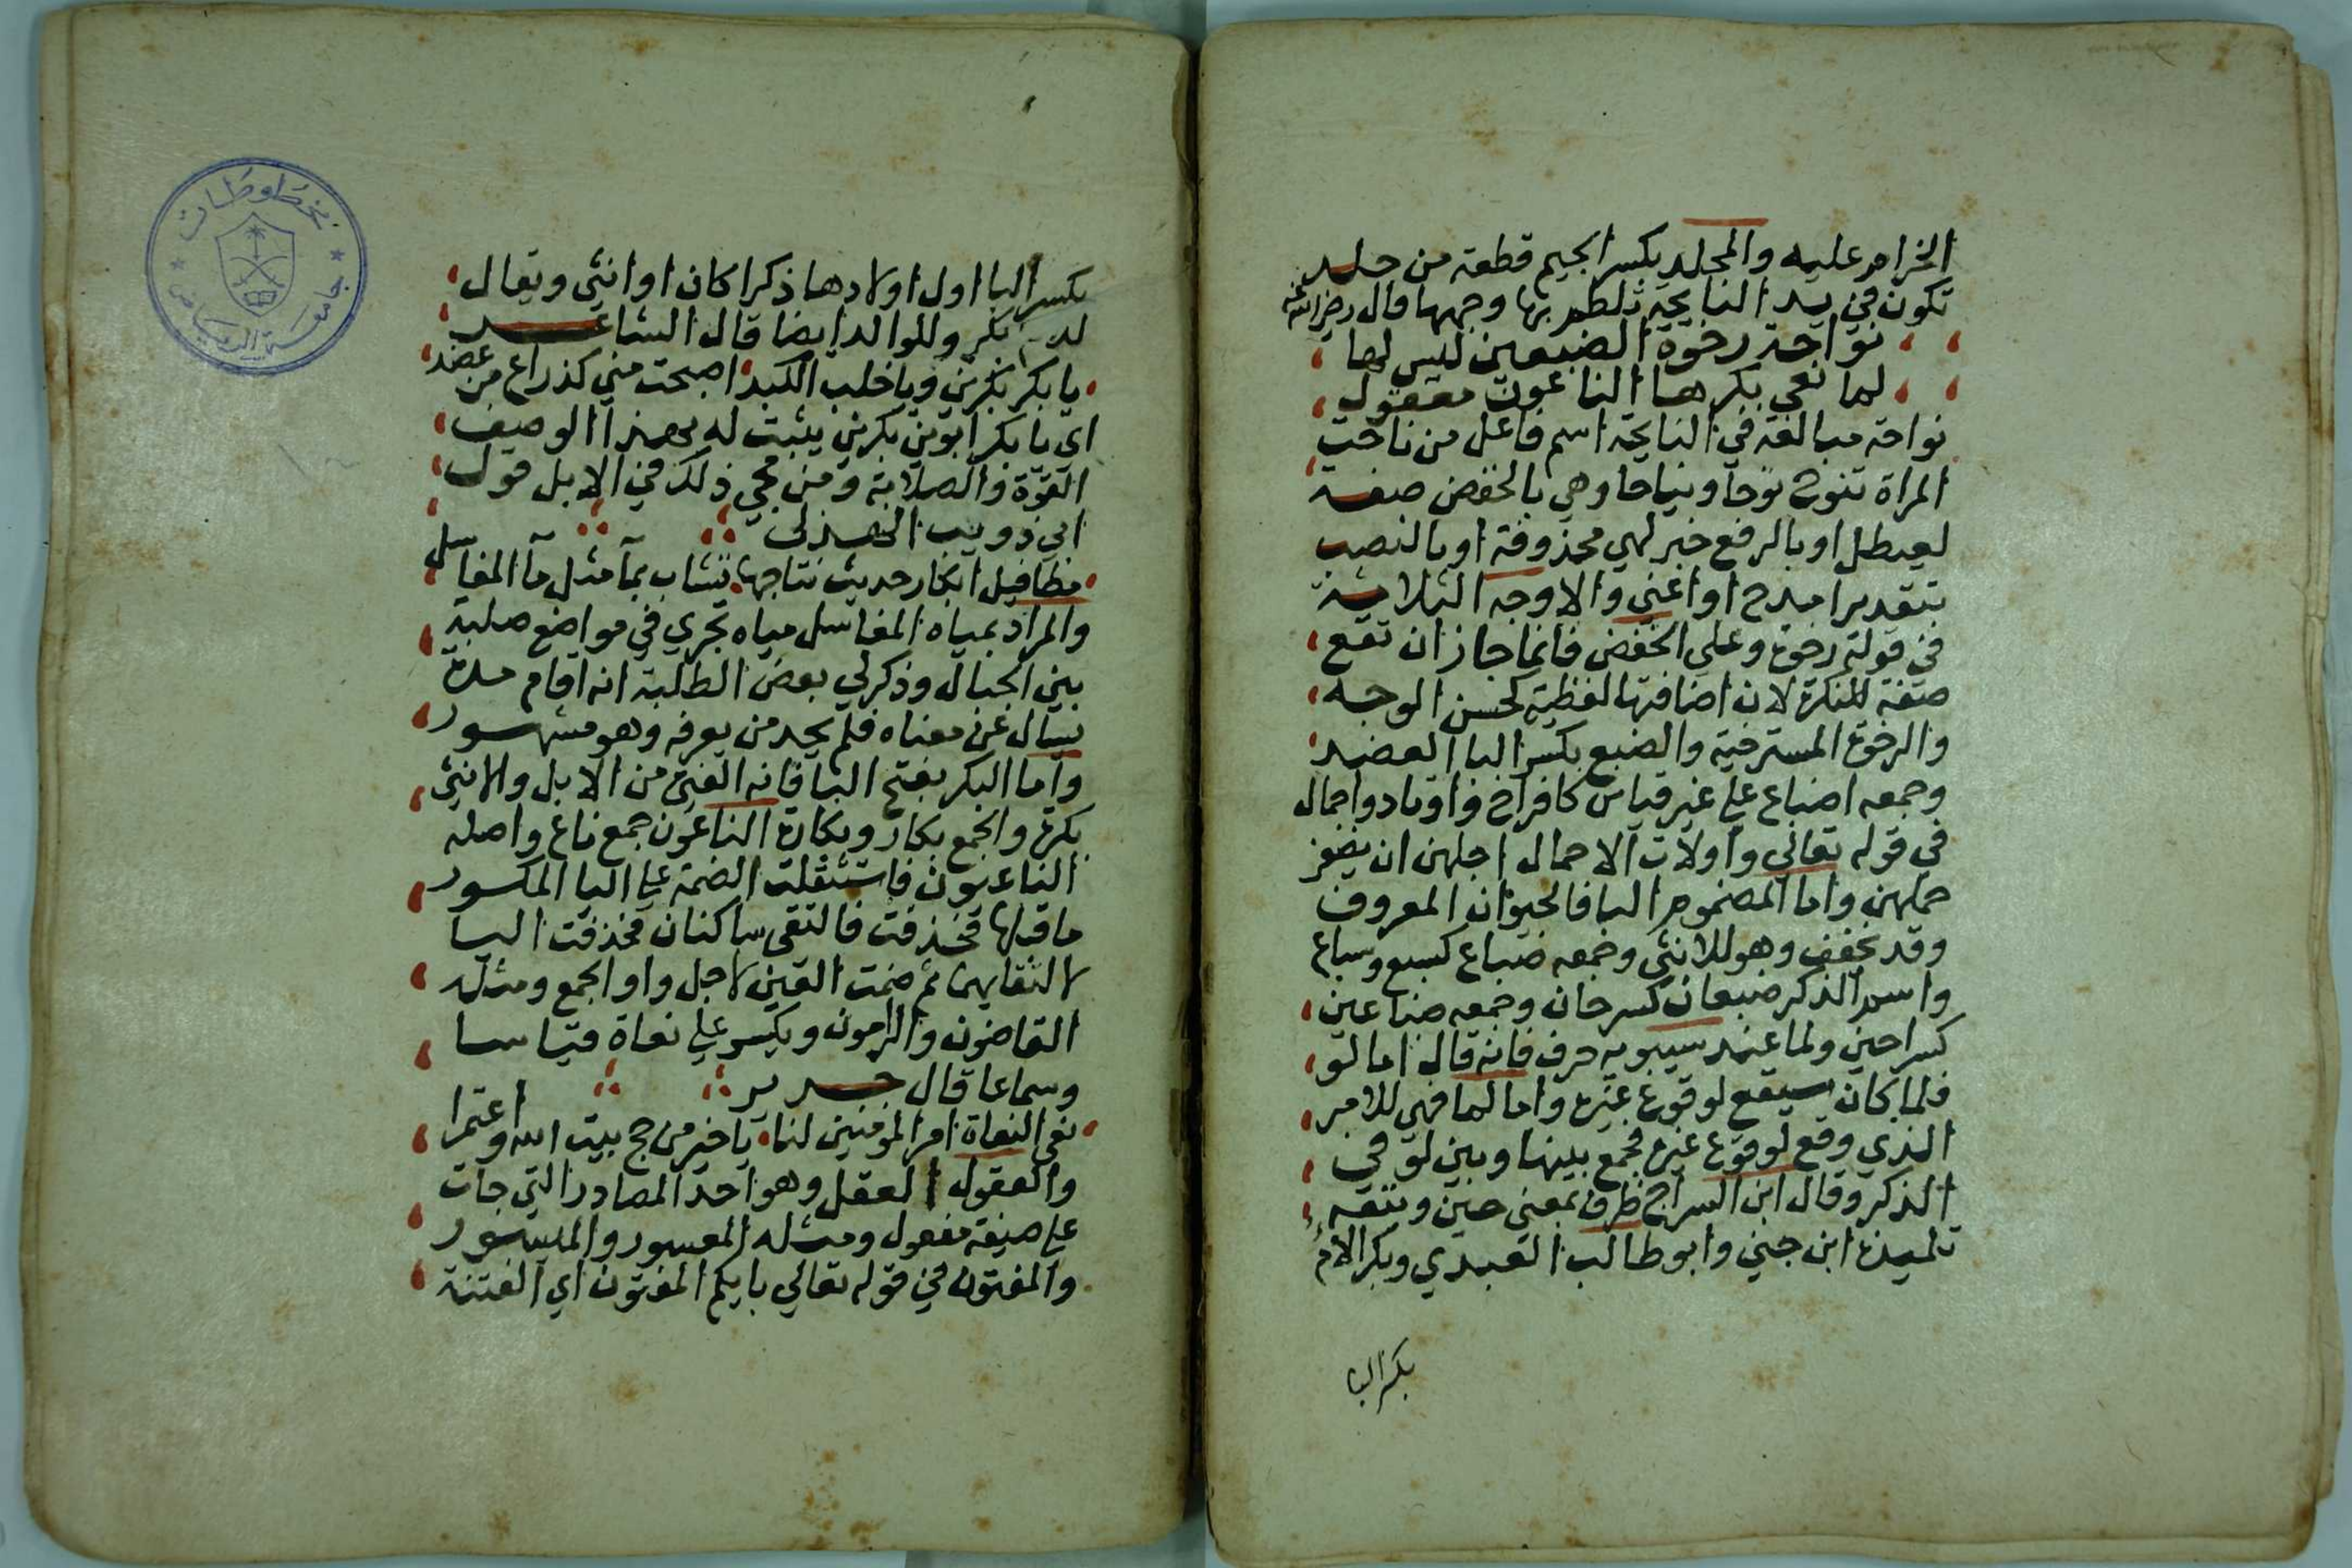 الخرام عليه والمجلد بكسر الجيم قطعة من جلد
تكون في يد النايحة تلطم بها وجهها قال رضي الله عنه
نواحة رخوة الضبعين ليس لها
لما نعى بكرها الناعون معقول
نواحة مبالغة في النايحة اسم فاعل من ناحت
المراة تنوح نوحا ونياحا وهي بالخفض صفة
لعيطل او بالرفع خبر لهي محذوفة او بالنصب
بتقدير امدح او اعني والاوجه الثلاثة
في قوله رخوة وعلي الخفض فانما جاز ان تقع
صفة للنكرة لان اضافتها لفظية كحسن الوجه
والرخوة المسترخية والضبع بكسر البا العضد
وجمعه اضباع علي غير قياس كافراخ واوتاد واحمال
في قوله تعالي واولات الاحمال اجلهن ان يضعن
حملهن واما المضموم البا فالحيوان المعروف
وقد تخفف وهو للانثي وجمعه ضباع كسبع وسباع
واسم الذكر ضبعان كسرحان وجمعه ضباعين
كسراحين ولما عند سيبويه حرف فانه قال اما لو
فلما كان سيقع لوقوع غيره واما لما فهي للامر
الذي وقع لوقوع غيره فجمع بينها وبين لو في
الذكر وقال ابن السراج ظرف بمعني حين وتبعه
تلميذه ابن جني وابو طالب العبدي وبكر الام
بكسر البا
بكسر البا اول اولادها ذكرا كان او انثي ويقال
لد بكر وللوالد ايضا قال الشاعر
يا بكر بكرين ويا خلب الكبد اصبحت مني كذراع من عضد
اي يا بكر ابوين بكرين يثبت له بهذا الوصف
القوة والصلابة ومن مجي ذلك في الابل قول
ابي ذويب الهذلي
مطافيل ابكار حديث نتاجها تشاب بمآ مثل مآ المفاصل
والمراد بمياه المفاصل مياه تجري في مواضع صلبة
بين الجبال وذكر لي بعض الطلبة انه اقام مدة
يسال عن معناه فلم يجد من يعرفه وهو مشهور
واما البكر بفتح البا فانه الفتي من الابل والانثي
بكرة والجمع بكار وبكارة الناعون جمع ناع واصله
الناعيون فاستثقلت الضمة علي اليا المكسور
ما قبلها فحذفت فالتقي ساكنان فحذفت اليا
لالتقايهما ثم ضمت العين لاجل واو الجمع ومثله
القاضون والرامون ويكسر علي نعاة قياسا
وسماعا قال جرير
نعي النعاة امير المومنين لنا يا خير من حج بيت الله واعتمرا
والمعقول العقل وهو احد المصادر التي جات
علي صيغة مفعول ومثله المعسور والميسور
والمفتون في قوله تعالي بايكم المفتون اي الفتنة
مخطوطات
جامعة الرياض